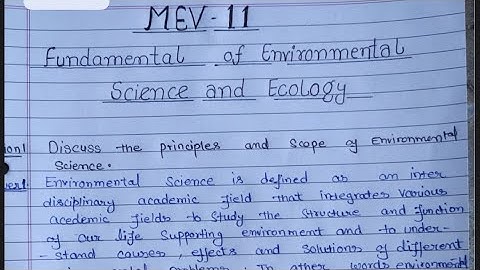 MEV-11
Fundamental of Environmental
Science and Ecology
Discuss the principles and Scope of Environmental
Science.
Environmental Science is defined as an inter
disciplinary academic field that integrates various
acedemic fields to study the structure and function
of our life supporting environment and to under-
-stand causes, effects and solutions of different
problems. In other words environmental